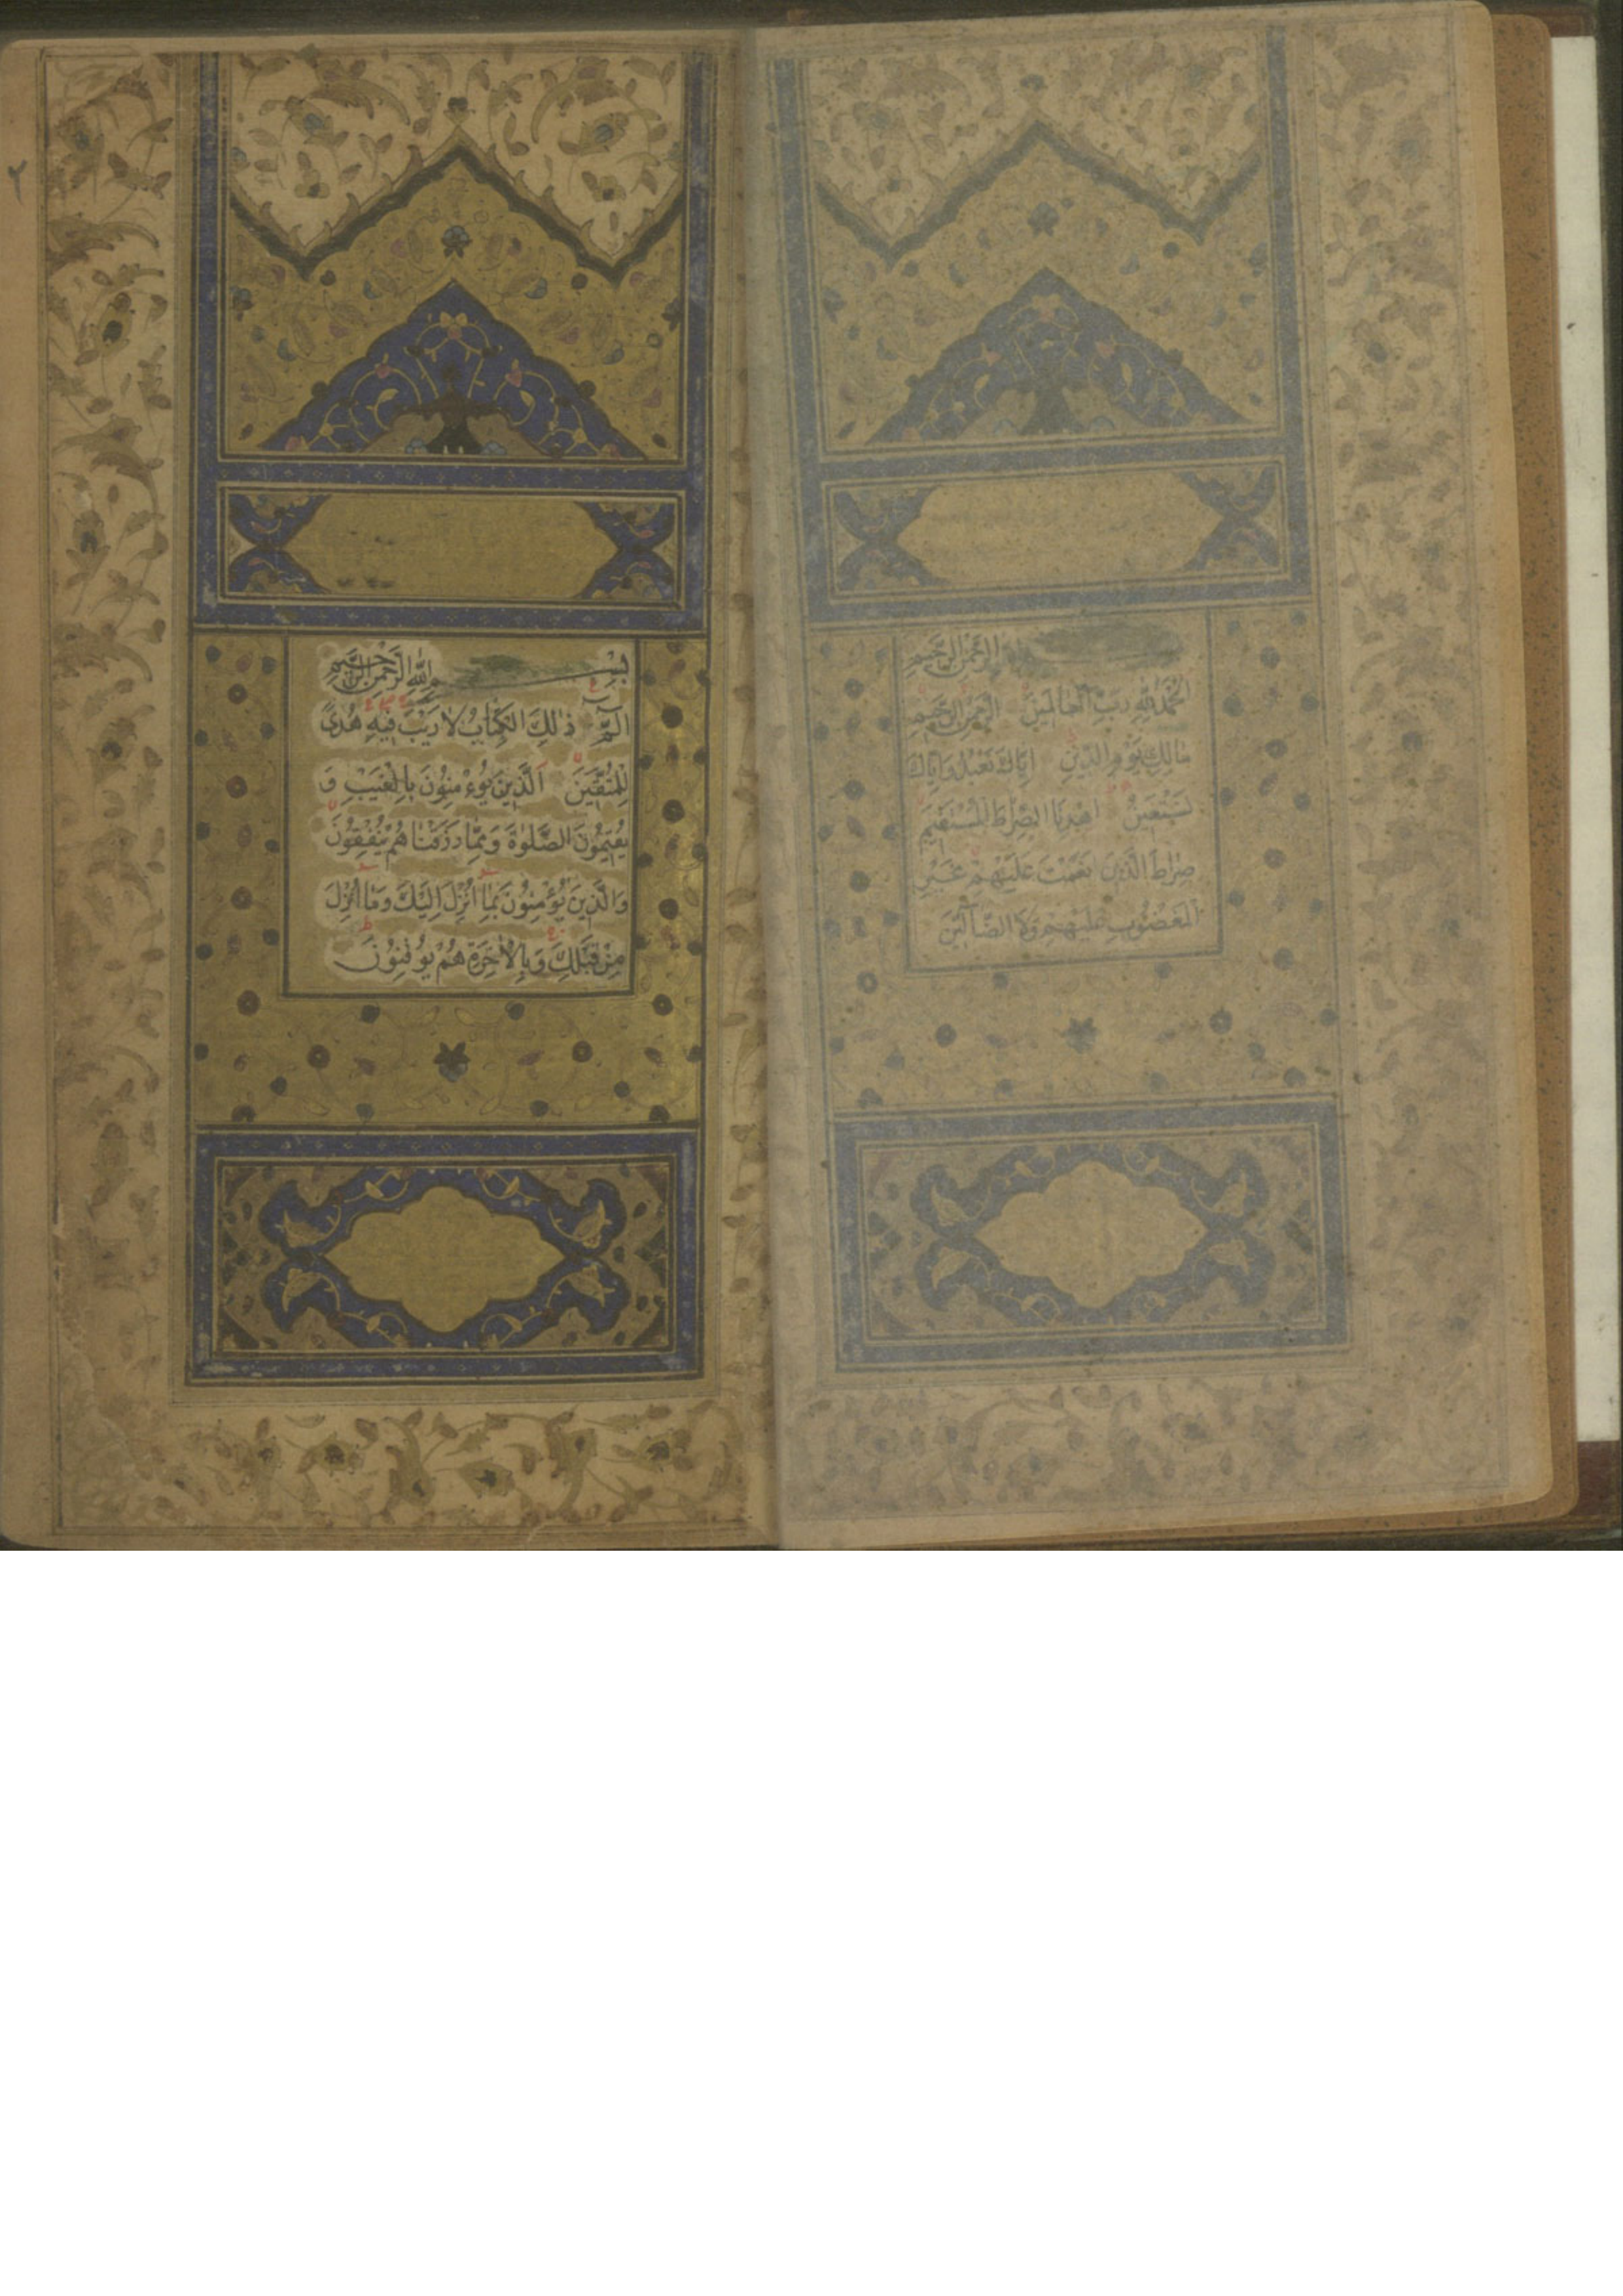 بِسْمِ اللّٰهِ الرَّحْمٰنِ الرَّحِيمِ
اَلْحَمْدُ لِلّٰهِ رَبِّ الْعَالَمِينَ الرَّحْمٰنِ الرَّحِيمِ
مَالِكِ يَوْمِ الدِّينِ اِيَّاكَ نَعْبُدُ وَاِيَّاكَ
نَسْتَعِينُ اِهْدِنَا الصِّرَاطَ الْمُسْتَقِيمَ
صِرَاطَ الَّذِينَ اَنْعَمْتَ عَلَيْهِمْ غَيْرِ
الْمَغْضُوبِ عَلَيْهِمْ وَلَا الضَّالِّينَ
٢
بِسْمِ اللّٰهِ الرَّحْمٰنِ الرَّحِيمِ
الٓمٓ ذٰلِكَ الْكِتَابُ لَا رَيْبَ فِيهِ هُدًى
لِلْمُتَّقِينَ اَلَّذِينَ يُؤْمِنُونَ بِالْغَيْبِ وَ
يُقِيمُونَ الصَّلٰوةَ وَمِمَّا رَزَقْنَاهُمْ يُنْفِقُونَ
وَالَّذِينَ يُؤْمِنُونَ بِمَا اُنْزِلَ اِلَيْكَ وَمَا اُنْزِلَ
مِنْ قَبْلِكَ وَبِالْاٰخِرَةِ هُمْ يُوقِنُونَ